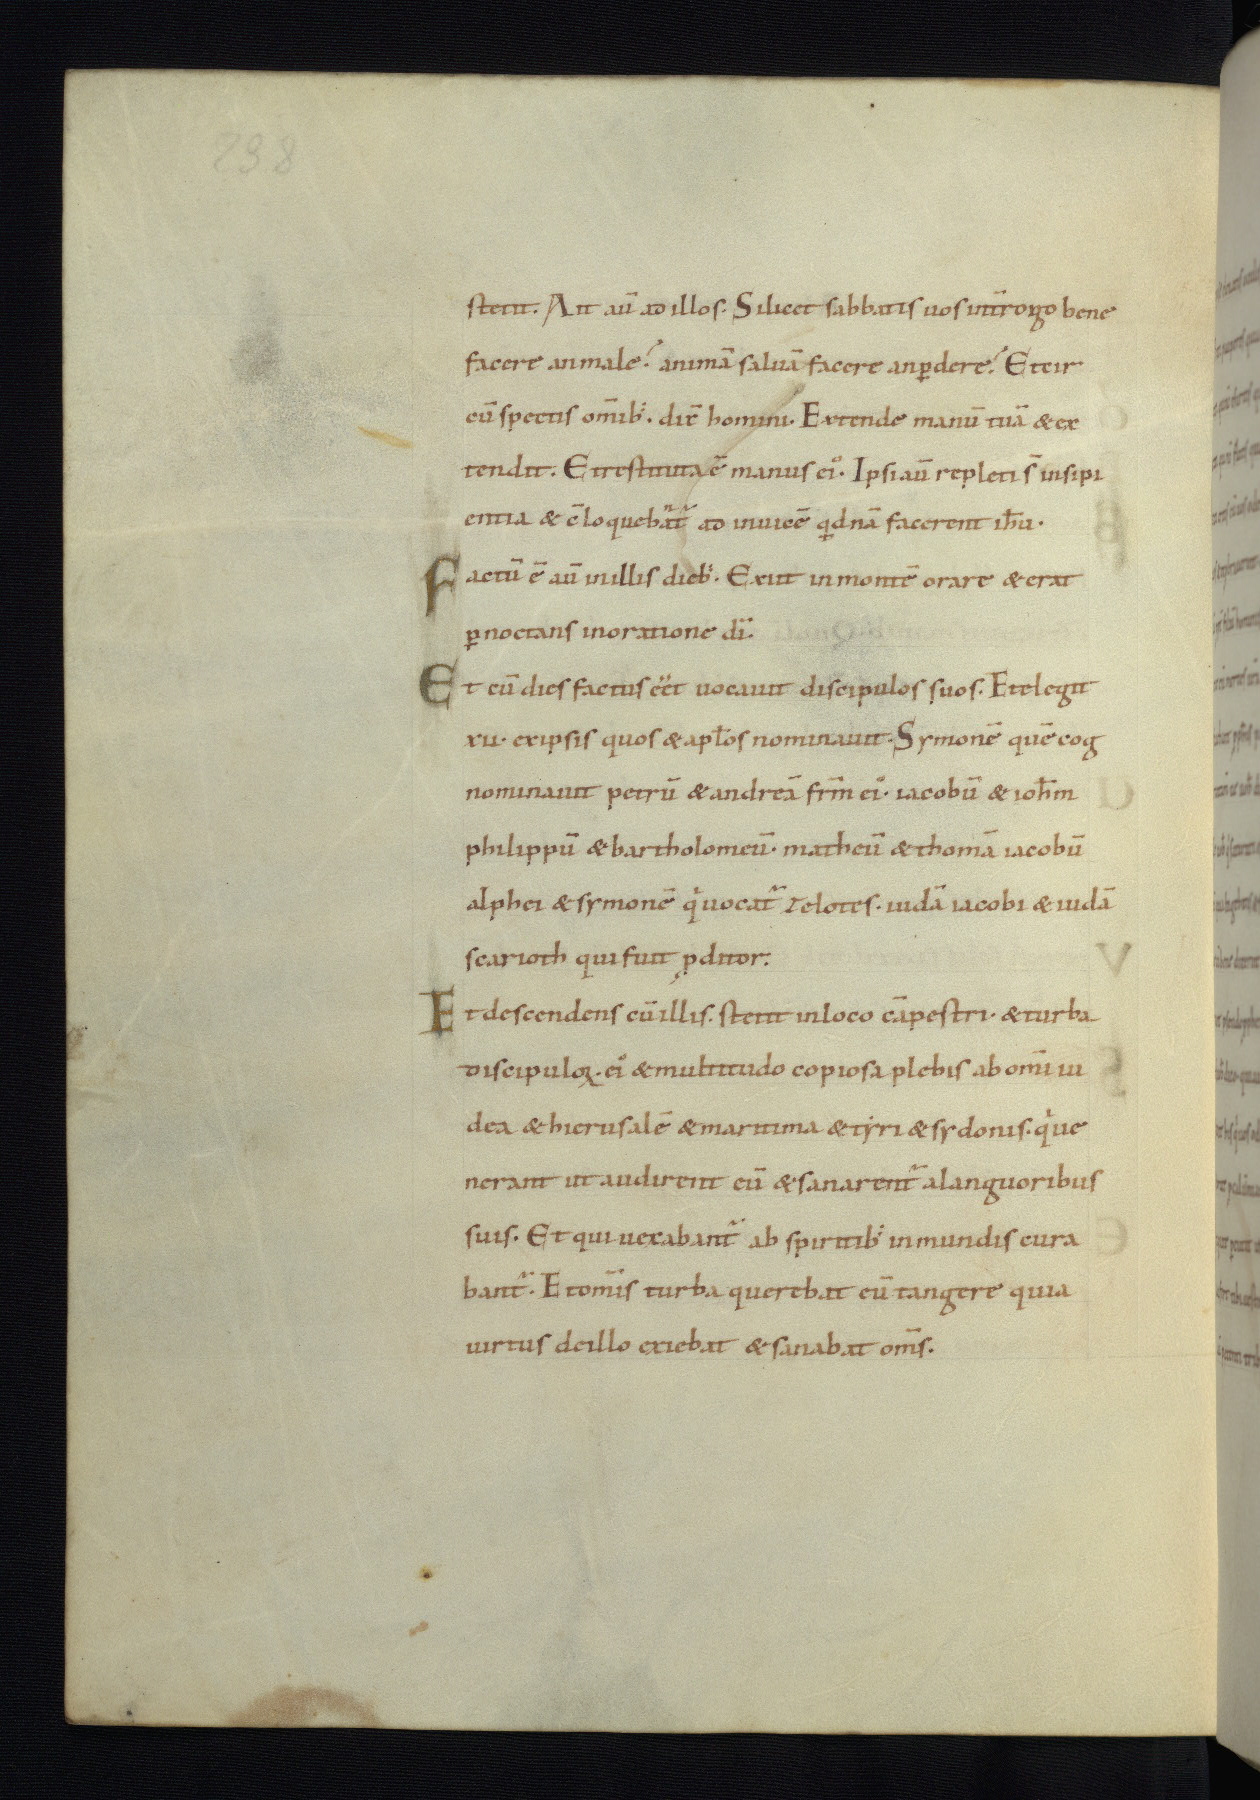 298
stetit. Ait aū ad illos. Si licet sabbatis uos int̄rogo bene
facere an male? animā saluā facere an ꝑdere? Et cir
cū spectis om̄ib;. dix̄ homini. Extende manū tuā & ex
tendit. Et restituta ē manus ei᷒. Ipsi aū repleti s̄ insipi
entia & c̄loquebāt̄ ad inuicē qͥdnā facerent ih̄u.
Factū ē aū in illis dieb;. Exiit in montē orare & erat
ꝑnoctans in oratione dī.
Et cū dies factus eēt uocauit discipulos suos. Et elegit
xii. ex ipsis quos & apl̄os nominauit. Symonē quē cog
nominauit petrū & andreā fr̄m ei᷒. iacobū & ioh̄m
philippū & bartholomeū. matheū & thomā iacobū
alphei & symonē qͥ uocat̄ zelotes. iudā iacobi & iudā
scarioth qui fuit ꝓditor.
Et descendens cū illis. stetit in loco cāpestri. & turba
discipuloꝝ. ei᷒ & multitudo copiosa plebis ab om̄i iu
dea & hierusalē & maritima & tyri & sydonis. qͥ ue
nerant ut audirent eū & sanarent̄ a languoribus
suis. Et qui uexabant̄ ab spiritib; inmundis cura
bant̄. Et om̄is turba querebat eū tangere quia
uirtus de illo exiebat & sanabat om̄s.